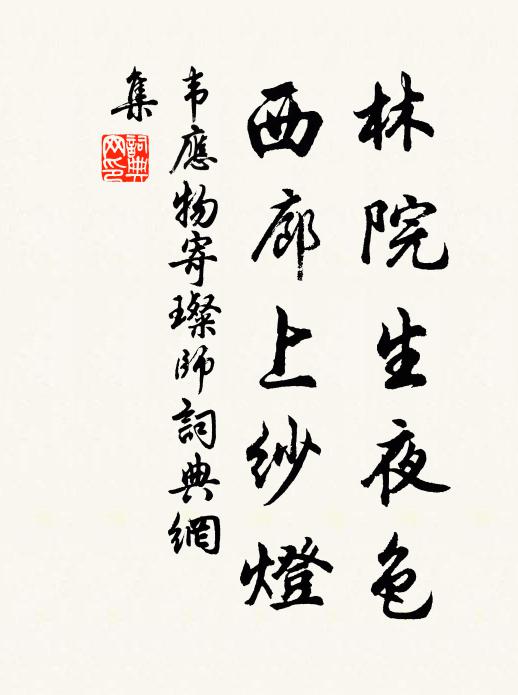 林院生夜色
西廊上纱燈
韦應物寄璨师詞典網
集
詞典網印